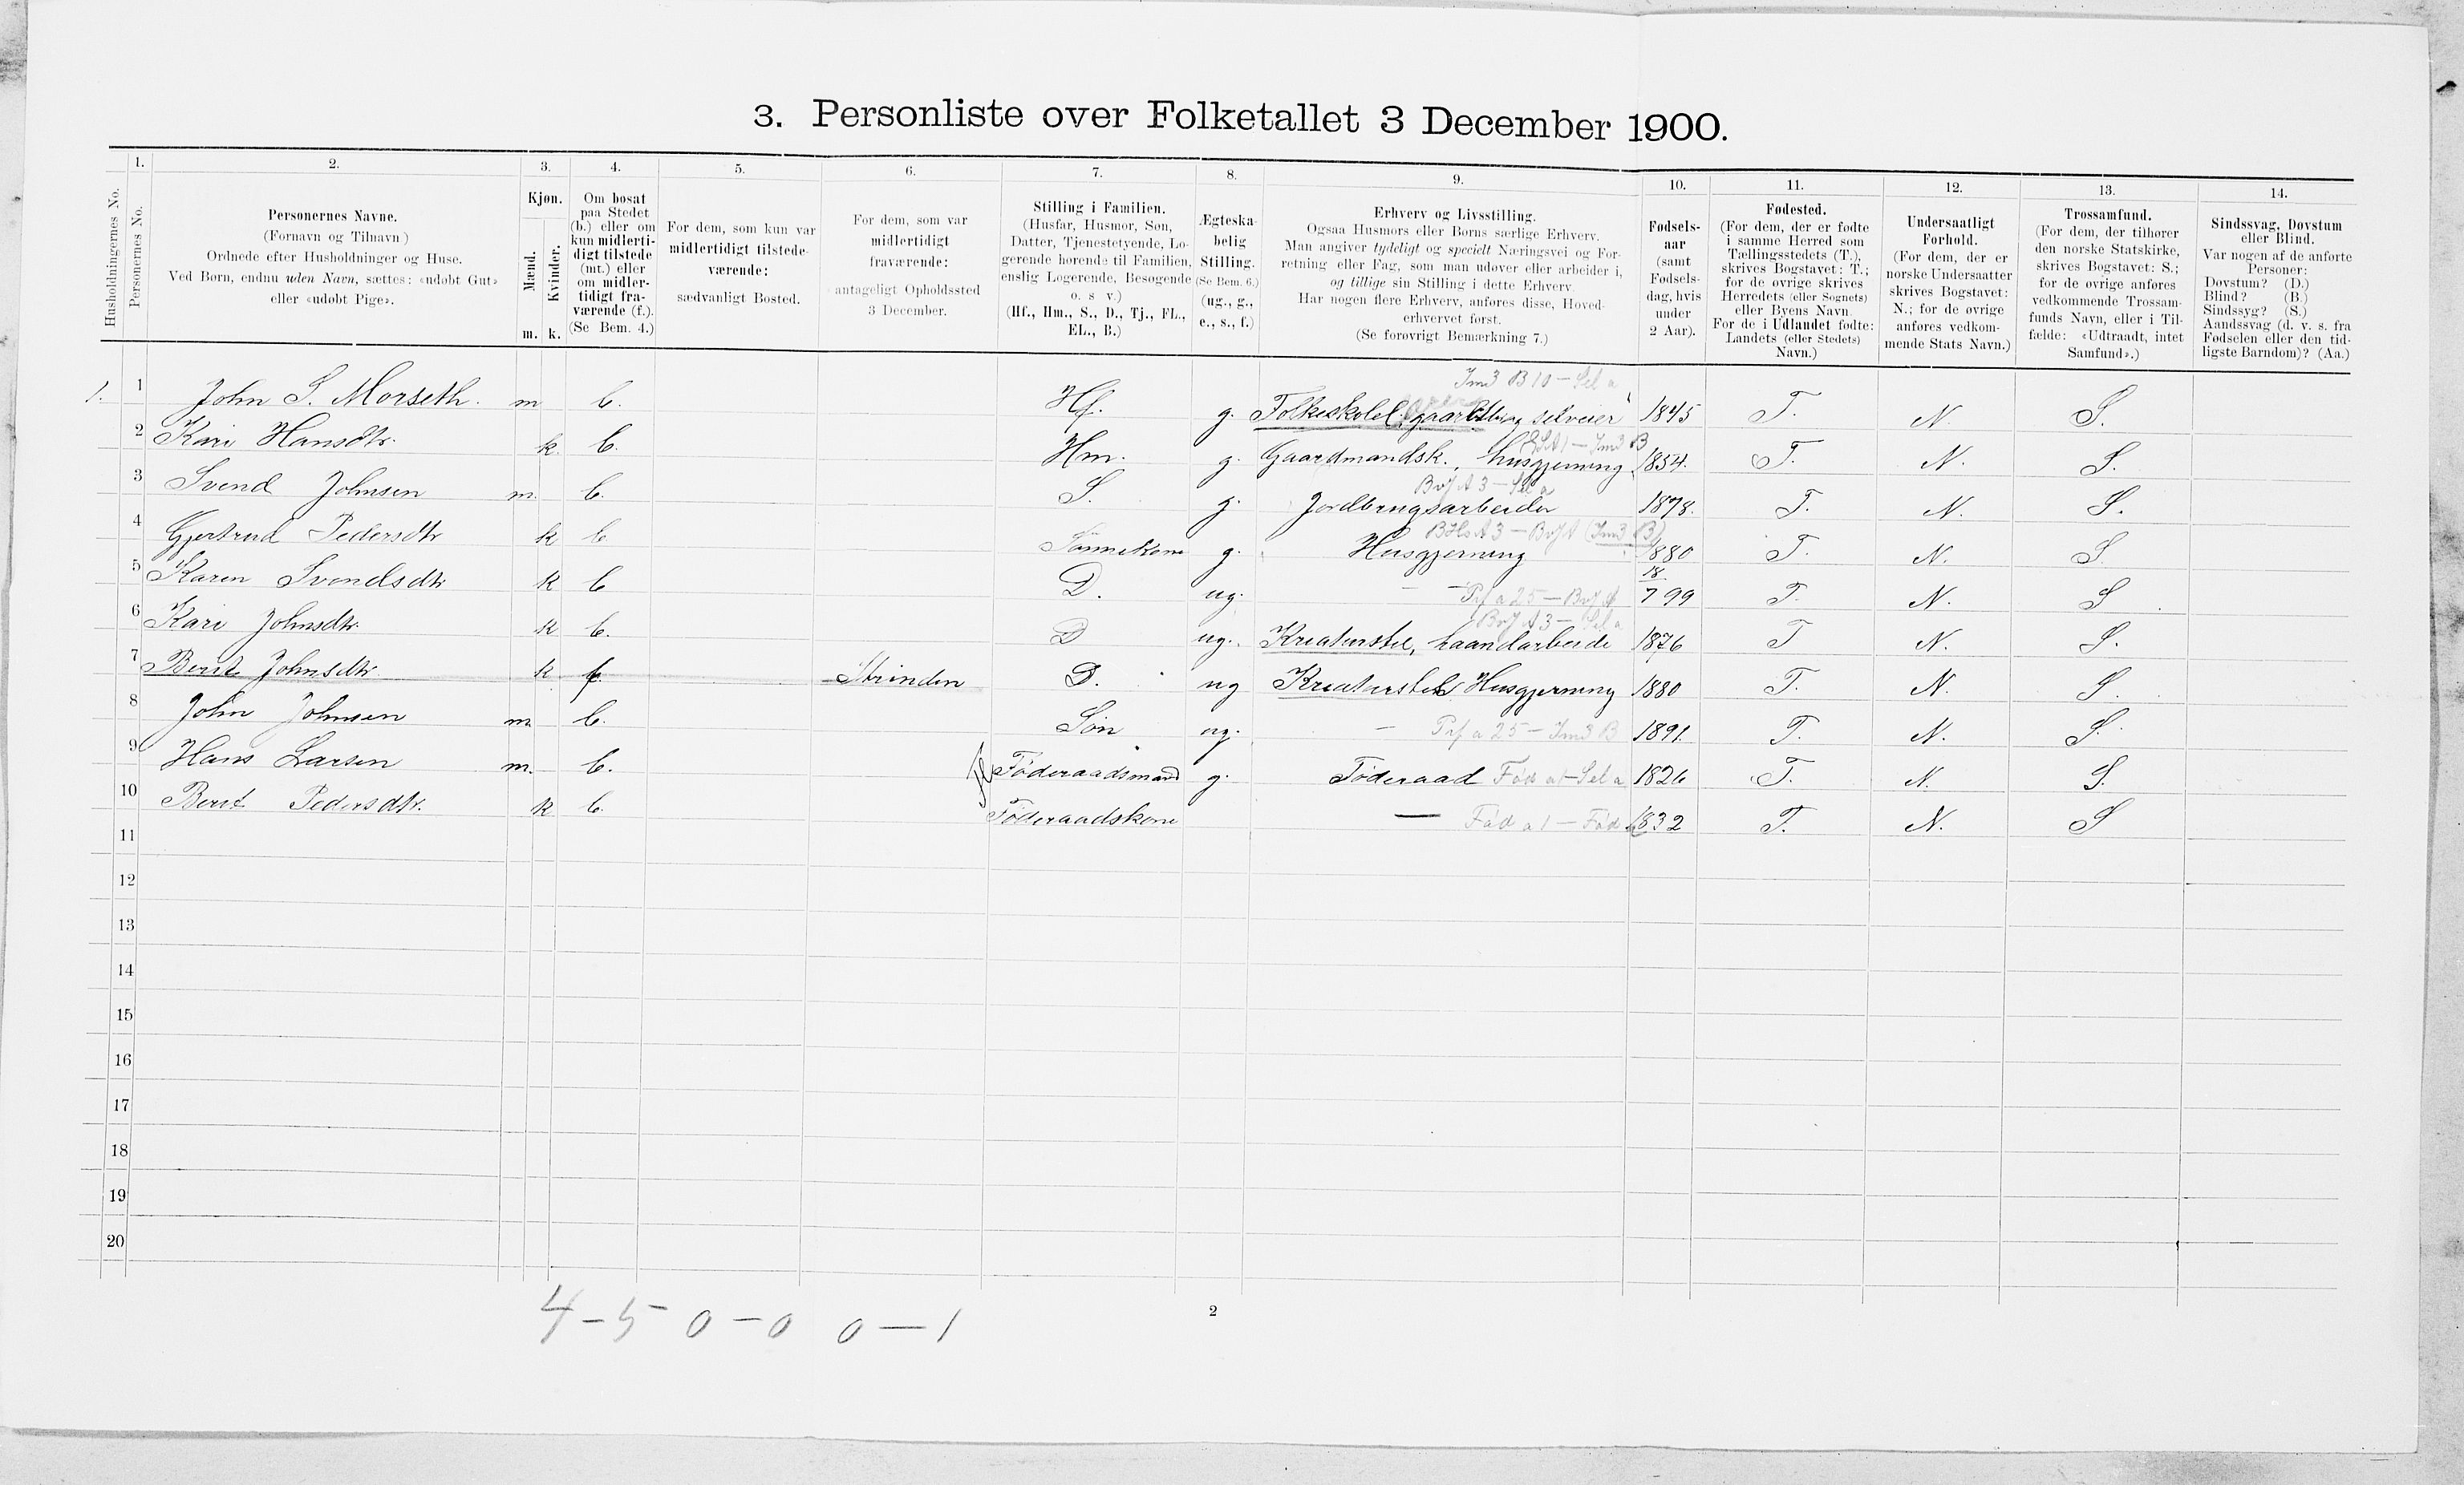 3. Personliste over Folketallet 3 December 1900.
Husholdningernes No.
1. Personernes No.
2. Personernes Navne.
(Fornavn og Tilnavn.)
Ordnede efter Husholdninger og Huse.
Ved Børn, endnu uden Navn, sættes: «udøbt Gut»
eller «udøbt Pige».
3. Kjøn.
Mænd. Kvinder.
m. k.
4. Om bosat
paa Stedet
(b.) eller om
kun midlerti-
digt tilstede
(mt.) eller
om midler-
tidigt fra-
værende (f.).
(Se Bem. 4.)
5. For dem, som kun var
midlertidigt tilstede-
værende:
sædvanligt Bosted.
6. For dem, som var
midlertidigt
fraværende:
antageligt Opholdssted
3 December.
7. Stilling i Familien.
(Husfar, Husmor, Søn,
Datter, Tjenestetyende, Lo-
gerende hørende til Familien,
enslig Logerende, Besøgende
o. s v.)
(Hf., Hm., S., D., Tj., FL.,
EL., B.)
8. Ægteska-
belig
Stilling.
(Se Bem. 6.)
(ug., g.,
e., s., f.)
9. Erhverv og Livsstilling.
Ogsaa Husmors eller Børns særlige Erhverv.
Man angiver tydeligt og specielt Næringsvei og For-
retning eller Fag, som man udøver eller arbeider i,
og tillige sin Stilling i dette Erhverv.
Har nogen flere Erhverv, anføres disse, Hoved-
erhvervet først.
(Se forøvrigt Bemærkning 7.)
10. Fødsels-
aar
(samt
Fødsels-
dag, hvis
under
2 Aar).
11. Fødested.
(For dem, der er fødte
i samme Herred som
Tællingsstedets (T.),
skrives Bogstavet: T.;
for de øvrige skrives
Herredets (eller Sognets)
eller Byens Navn.
For de i Udlandet fødte:
Landets (eller Stedets)
Navn.)
12. Undersaatligt
Forhold.
(For dem, der er
norske Undersaatter
skrives Bogstavet:
N.; for de øvrige
anføres vedkom-
mende Stats Navn.)
13. Trossamfund.
(For dem, der tilhører
den norske Statskirke,
skrives Bogstavet: S.;
for de øvrige anføres
vedkommende Trossam-
funds Navn, eller i Til-
fælde: «Udtraadt, intet
Samfund».)
14. Sindssvag, Døvstum
eller Blind.
Var nogen af de anførte
Personer:
Døvstum? (D.)
Blind? (B.)
Sindssyg? (S.)
Aandssvag (d. v. s. fra
Fødselen eller den tid-
ligste Barndom)? (Aa.)
Im3 B10 - Sel a
1. 1 John S. Morseth. m b. Hf. g. Folkeskolel. gaardbrug selveier 1845 T. N. S.
2 Kari Hansdtr. k. b. Hm. g. Gaardmandsk., husgjerning. 1854. T. N. S.
BvJ A 3 - Sel a
3 Svend Johnsen m. b. S. g. Jordbrugsarbeider 1878. T. N. S.
BHs A 3 - BvJ A (Im3 B)
4 Gjertrud Pedersdtr k b Sønnekone g. Husgjerning 1880 T. N. S
5 Karen Svendsdtr k b D. ug. - - Prf a 25 - BvJ A 18/7 99 T. N. S
BvJ A 3 - Sel a
6 Kari Johnsdtr. k b. D ug. Kreaturstel, haandarbeide 1876 T N. S.
7 Berit Johnsdtr. k f Strinden D. ug Kreaturstel Husgjerning 1880 T. N. S.
8 John Johnsen m. b. Søn ug. - Prf a 25 - Im3 B 1891. T. N. S.
9 Hans Larsen m. b. Føderaadsmand g. Føderaad Fød a1 - Sel a 1826 T. N. S.
10 Berit Pedersdtr. k b. Føderaadskone — Fød a1 - Fød 1832 T. N. S
11
12
13
14
15
16
17
18
19
20
4 - 5 0 - 0 0 - 1
2